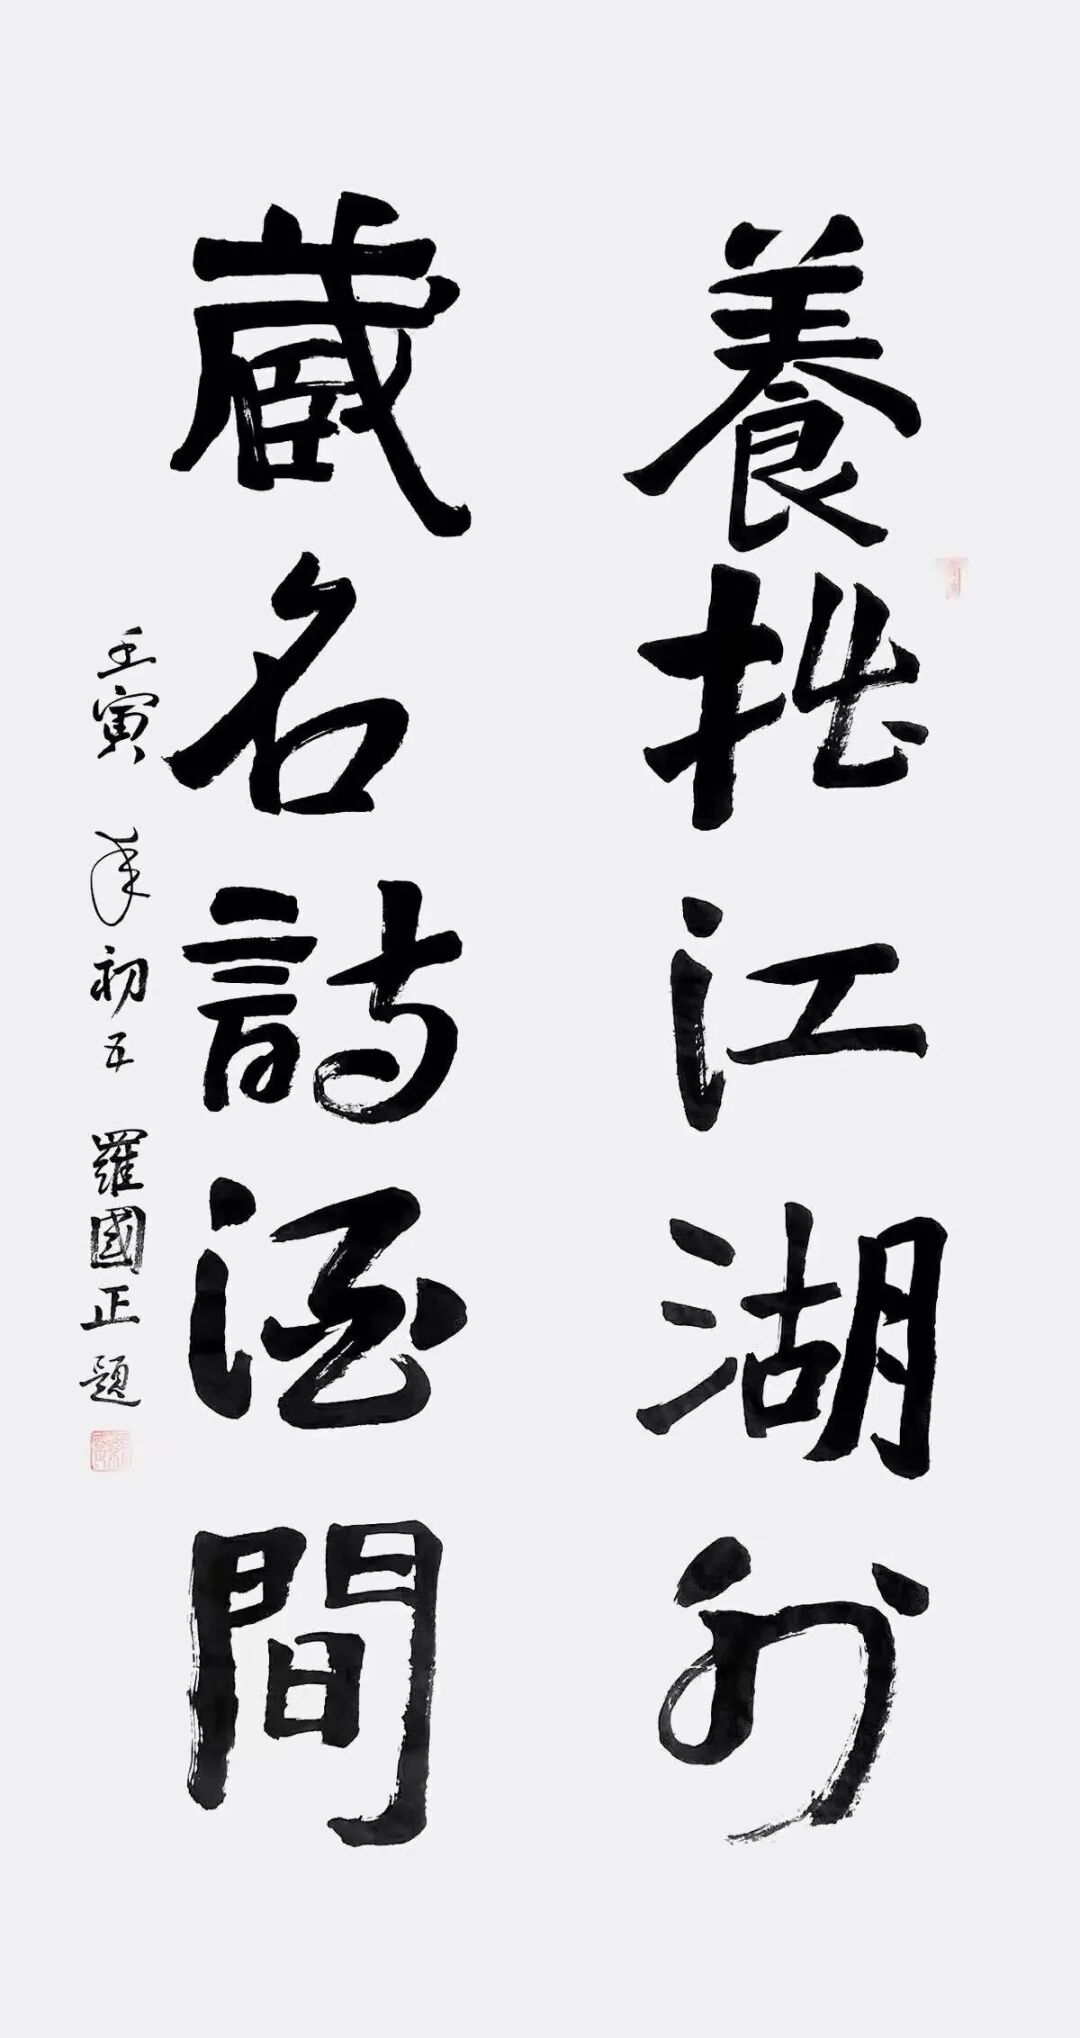 養拙江湖外
藏名詩酒間
壬寅年初五羅國正題